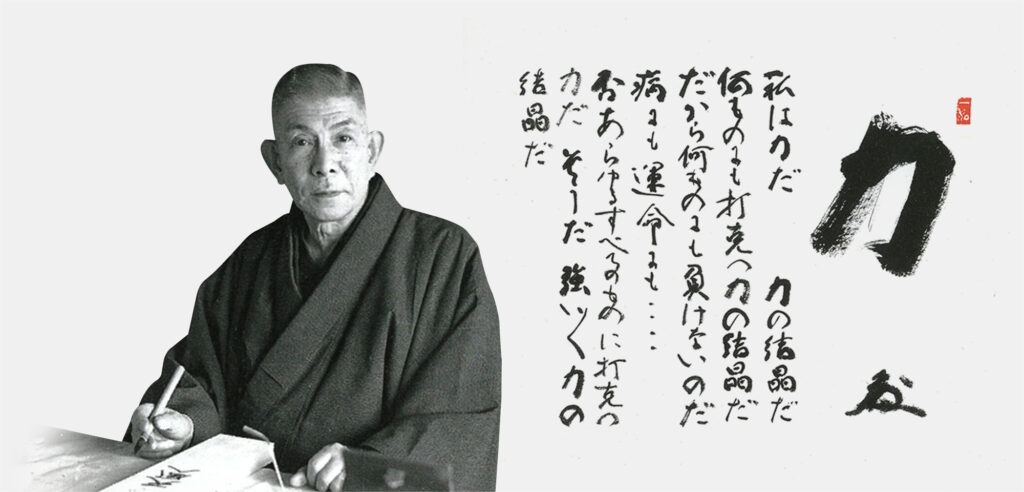 力
私は力だ　力の結晶だ
何ものにも打克つ力の結晶だ
だから何ものにも負けないのだ
病にも運命にも・・・・
否あらゆるすべてのものに打克つ
力だ　そうだ　強い〱力の
結晶だ